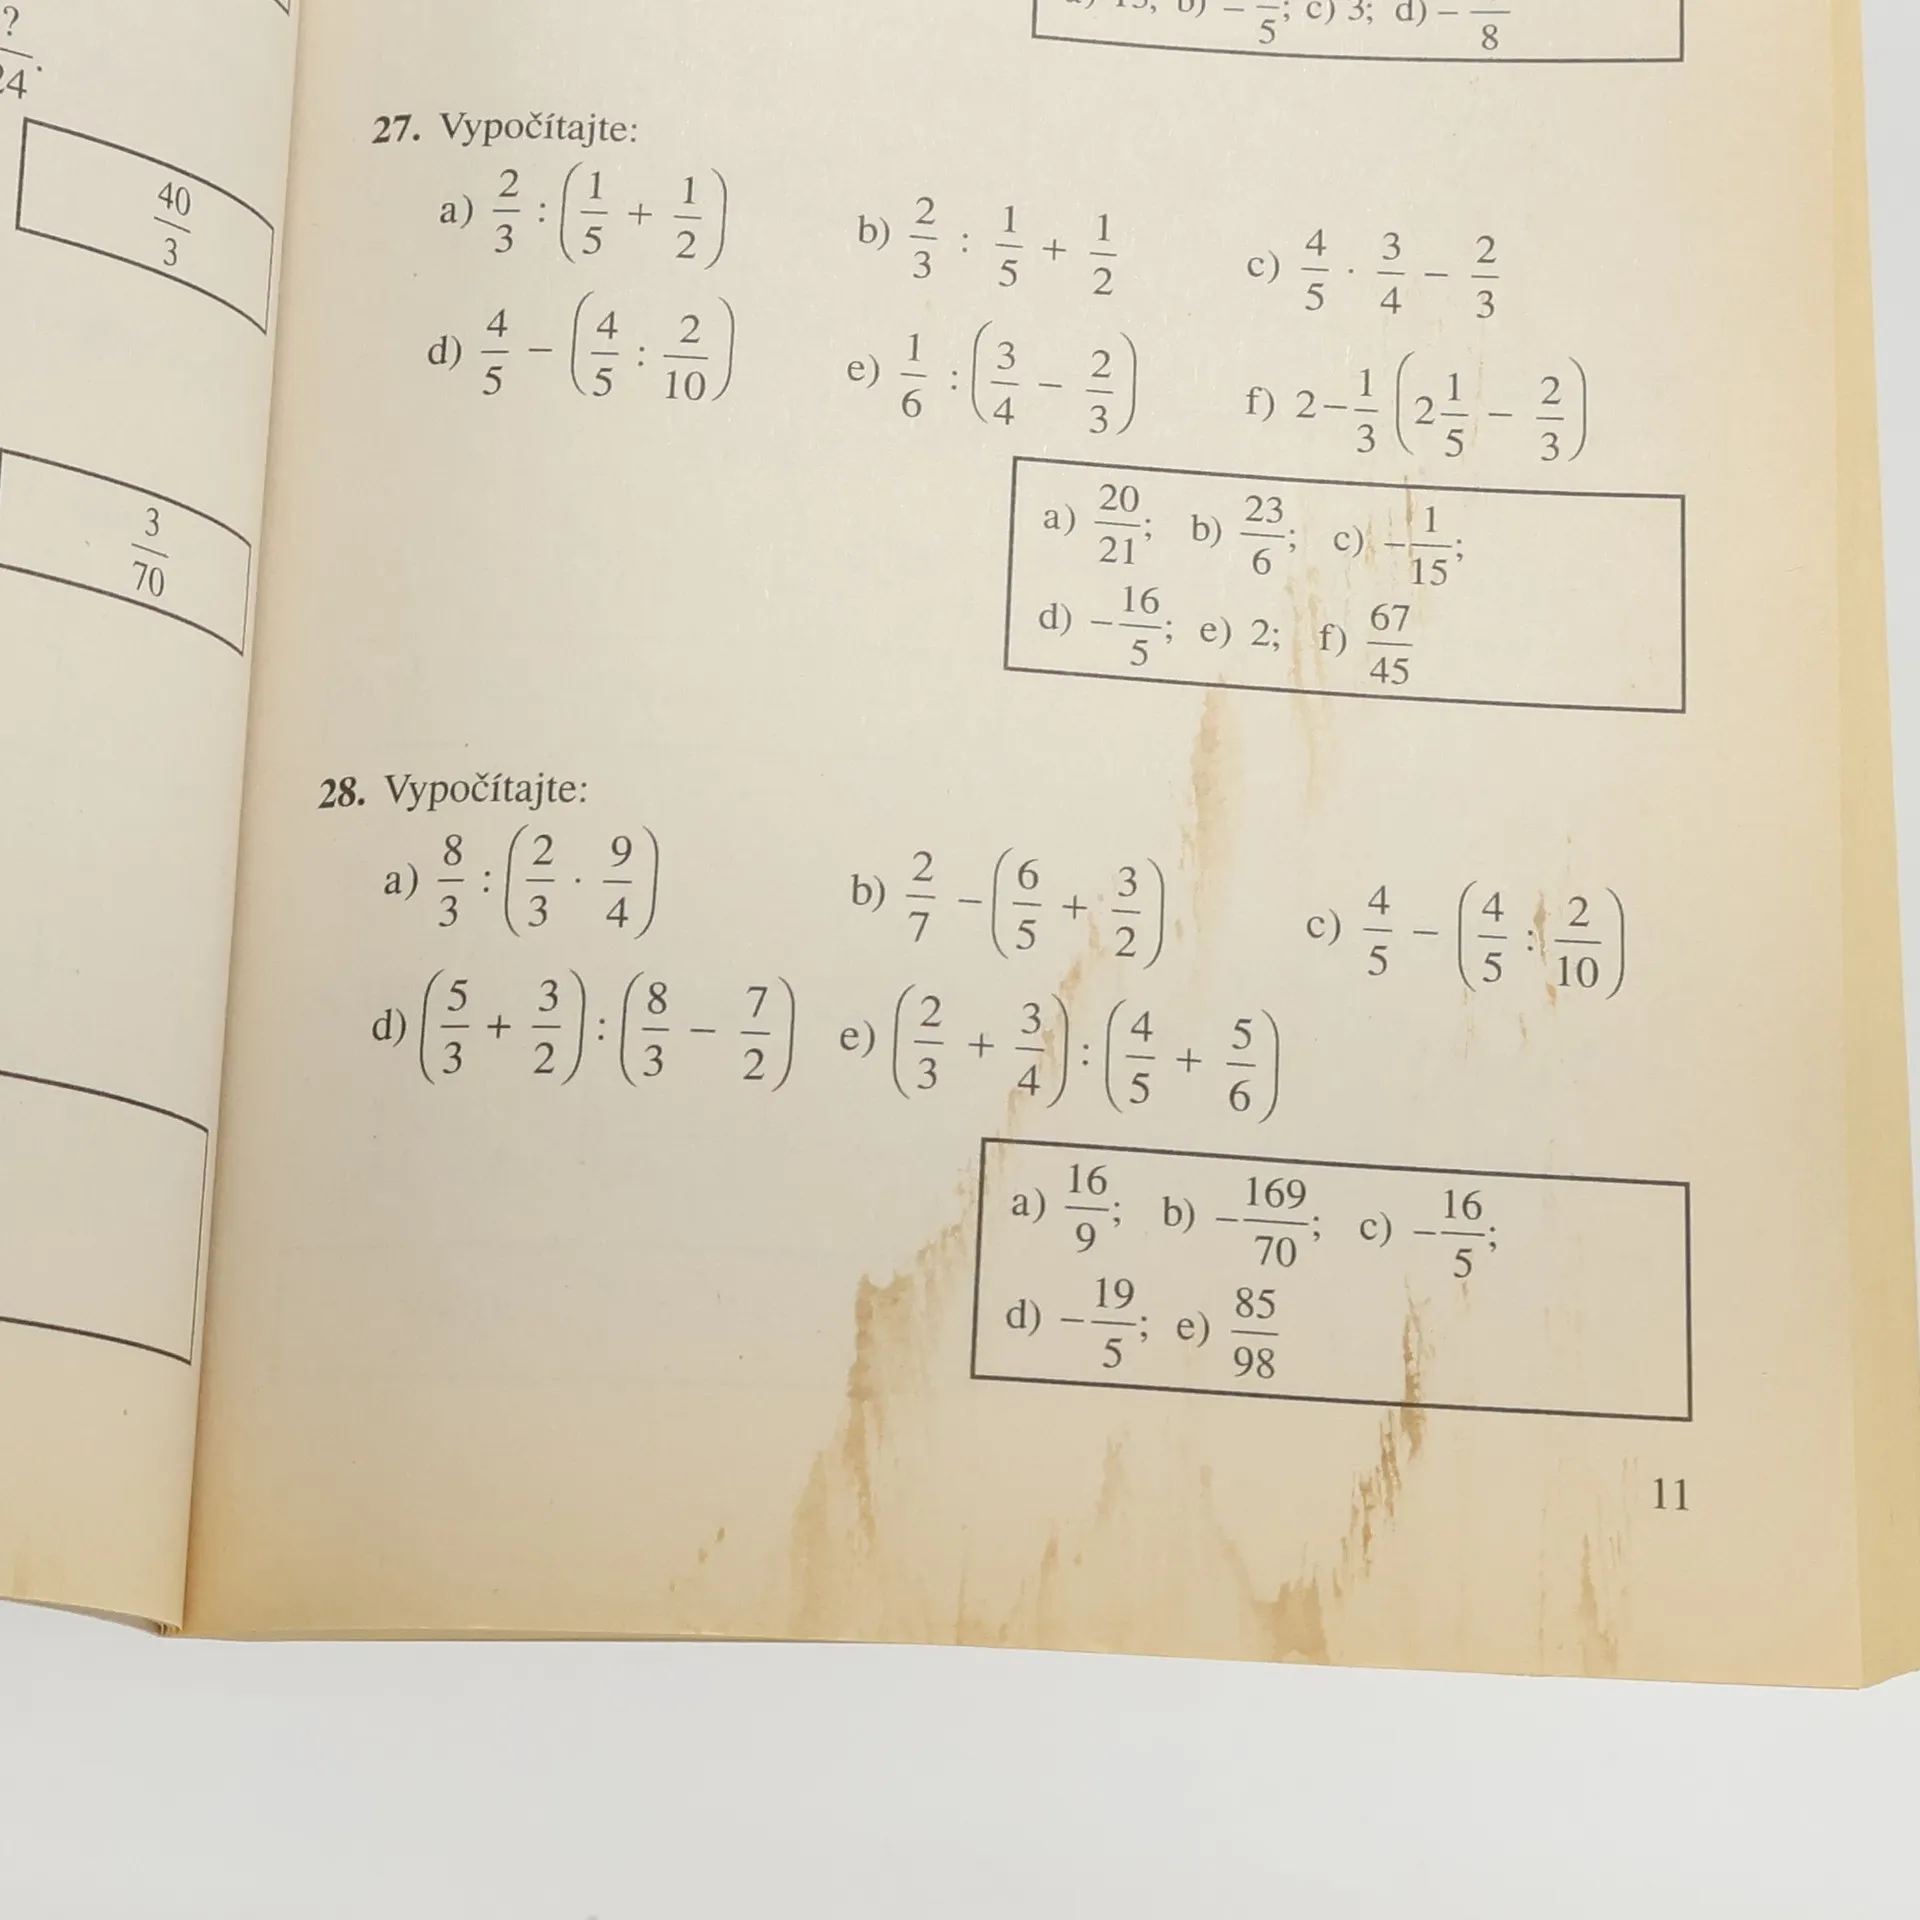 ?/24.
40/3
3/70
a) 15; b) -/5; c) 3; d) -/8
27. Vypočítajte:
a) 2/3 : (1/5 + 1/2) b) 2/3 : 1/5 + 1/2 c) 4/5 · 3/4 − 2/3
d) 4/5 − (4/5 : 2/10) e) 1/6 : (3/4 − 2/3) f) 2−1/3 (2 1/5 − 2/3)
a) 20/21; b) 23/6; c) −1/15;
d) −16/5; e) 2; f) 67/45
28. Vypočítajte:
a) 8/3 : (2/3 · 9/4) b) 2/7 − (6/5 + 3/2) c) 4/5 − (4/5 : 2/10)
d) (5/3 + 3/2) : (8/3 − 7/2) e) (2/3 + 3/4) : (4/5 + 5/6)
a) 16/9; b) −169/70; c) −16/5;
d) −19/5; e) 85/98
11